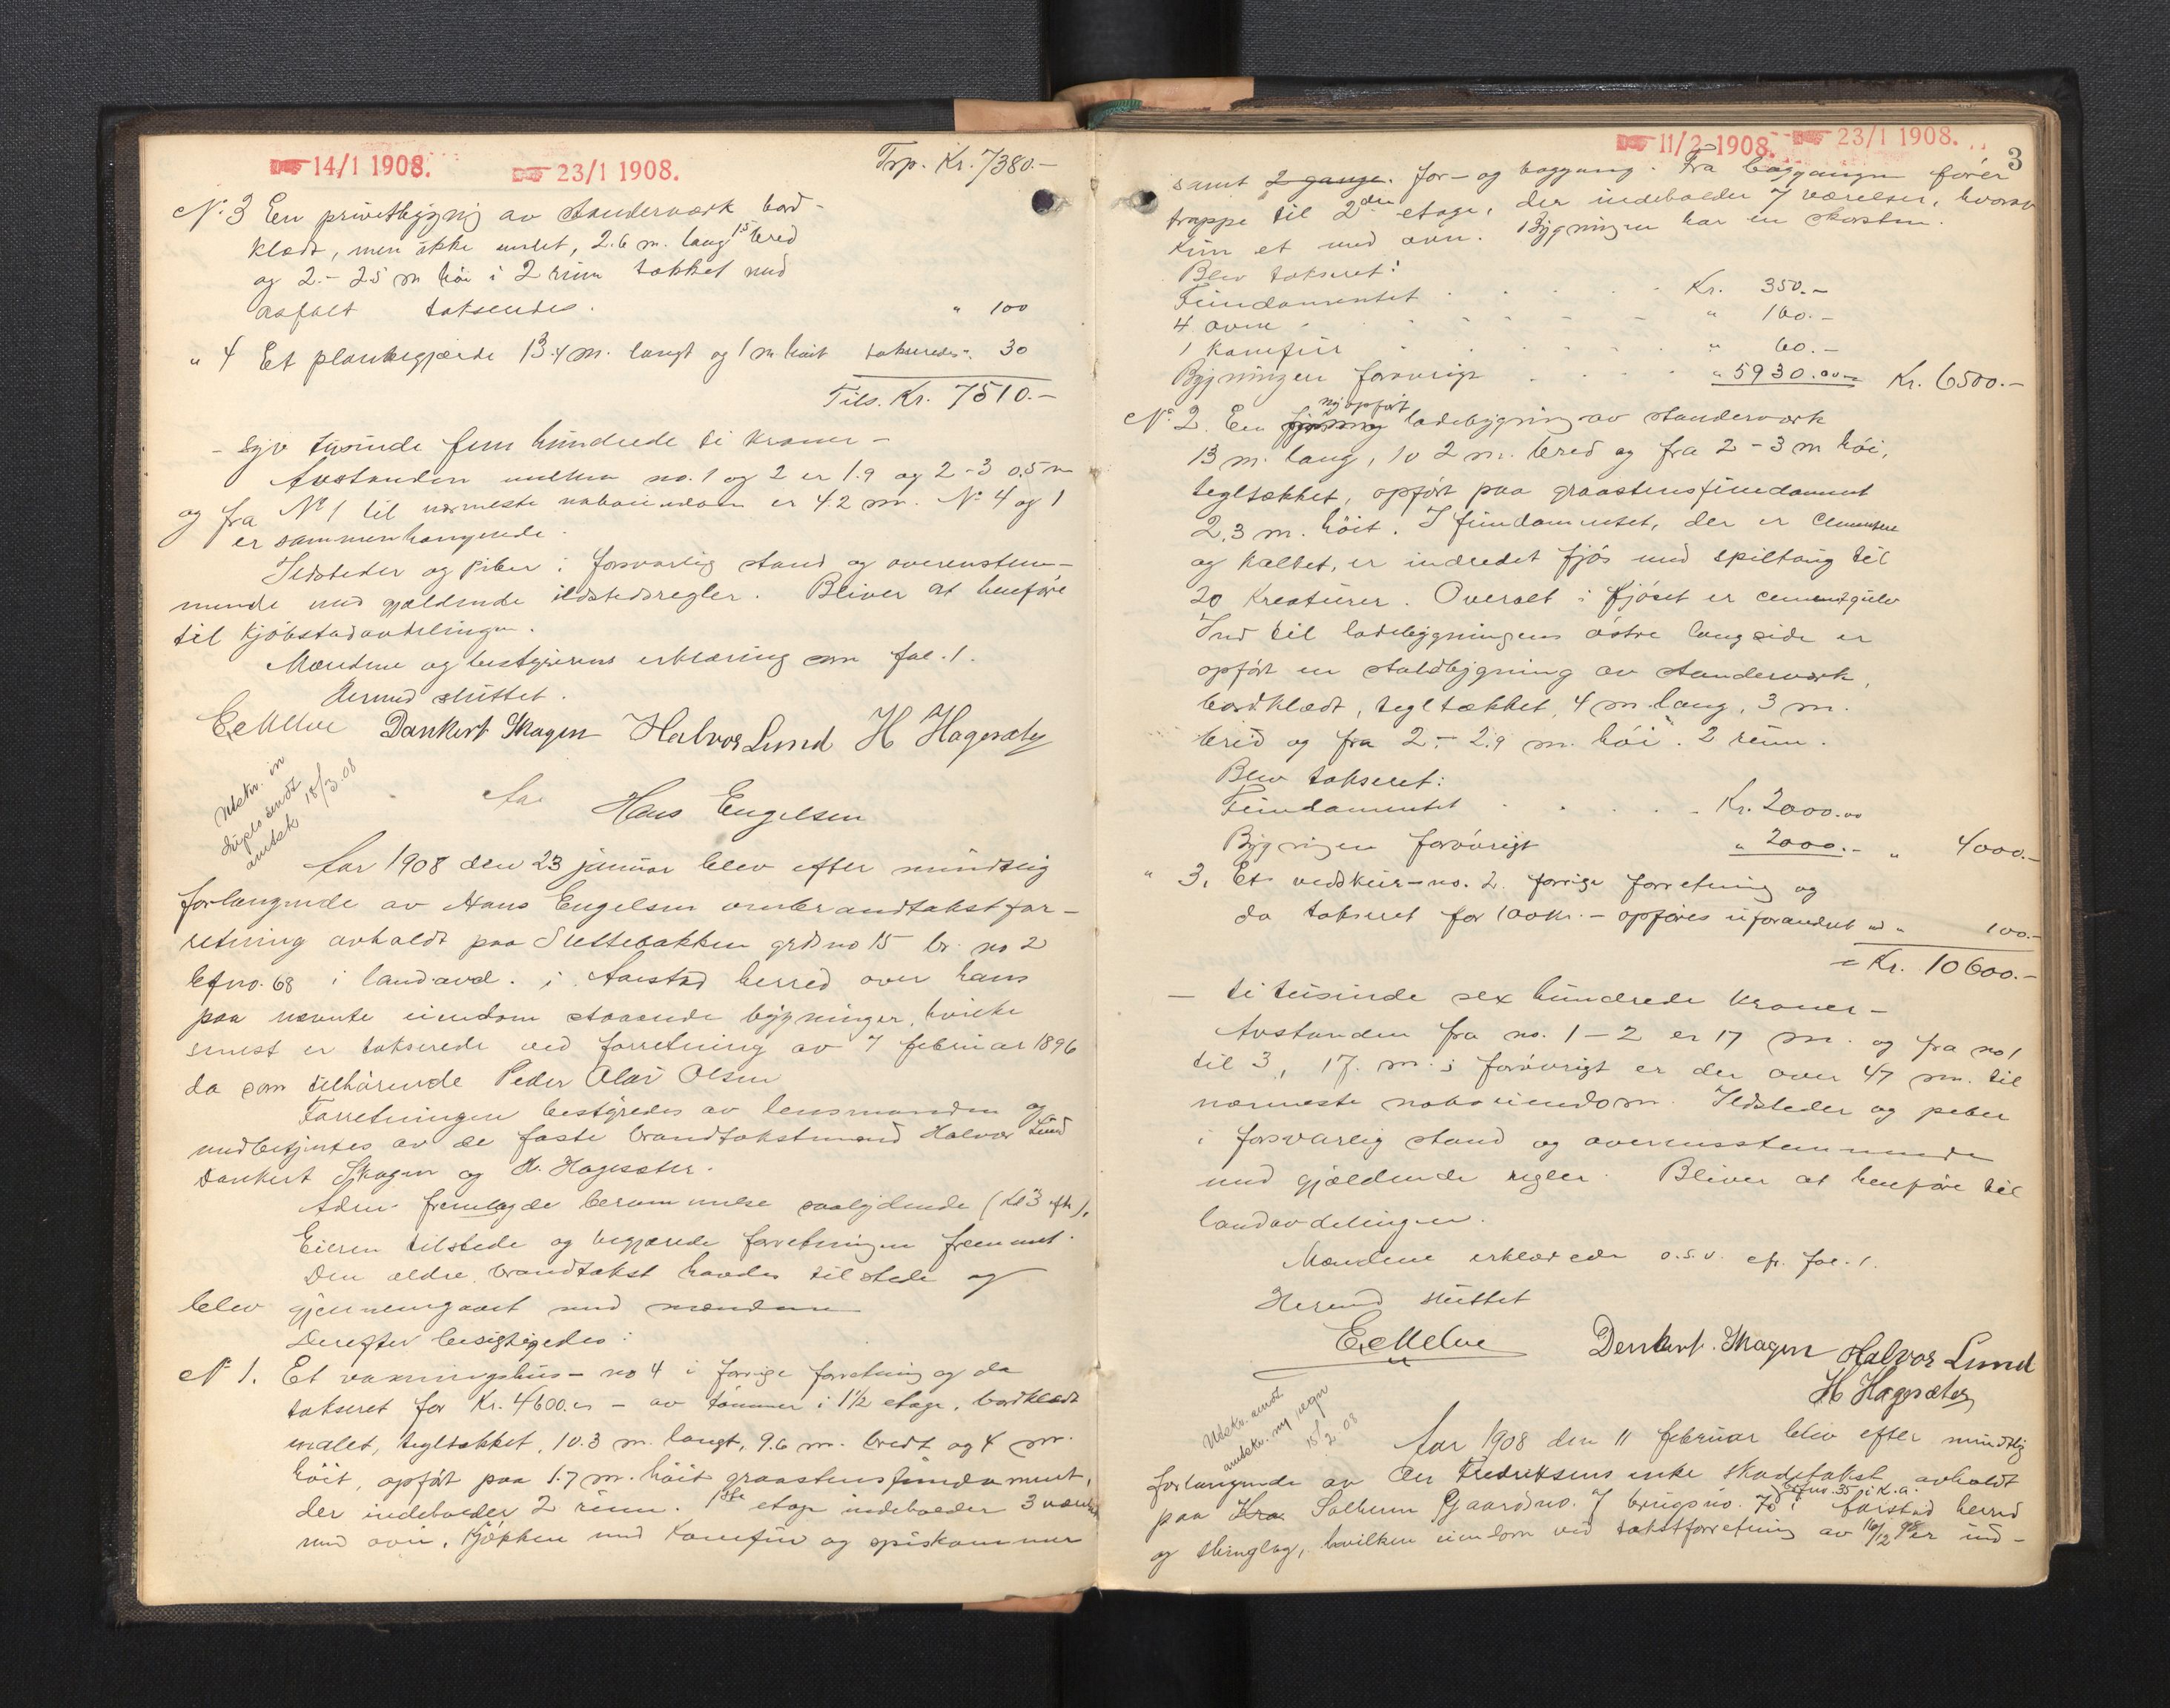 14/1 1908. 23/1 1908. Trp. Kr. 7380.-
No 3 En privetbygnig av standerværk bord-
klædt, men ikke malet, 2.6 m. lang 1.5 bred
og 2.- 2.5 m høi i 2 rum tækket med
asfalt takseredes. " 100
" 4 Et plankegjærde 13.4 m. langt og 1 m. høit takseredes ". 30
Tils. Kr. 7510.-
- Syv tusinde fem hundrede ti kroner -
Avstanden mellem no. 1 og 2 er 1.9 og 2-3 0.5 m
og fra No 1 til nærmeste naboeiendom er 4.2 m. No 4 og 1
er sammenhængende.
Ildsteder og piber i forsvarlig stand og overenstem-
mende med gjældende ildstedsregler. Bliver at henføre
til Kjøbstadavdelingen.
Mændene og bestyrerens erklæring som fol. 1.
Hermed sluttet.
E. Melve Dankert Skagen Halvor Lund H Hagesæter
Utskr. in
duplo sendt
amtsk 18/3.08
Hans Engelsen
Aar 1908 den 23 januar blev efter mundtlig
forlangende av Hans Engelsen ombrandtakstfor-
retning avholdt paa Slettebakken grdsno 15 br. no 2
bfno. 68 i landavd. i Aarstad herred over hans
paa nævnte eiendom staaende bygninger, hvilke
senest er takserede ved forretning av 7 februar 1896
da som tilhørende Peder Olai Olsen
Forretningen bestyredes av lensmanden og
medbetjentes av de faste brandtakstmænd Halvor Lund
Dankert Skagen og H. Hagesæter.
Adm. fremlagde berammelse saalydende
Eieren tilstede og begjærede forretningen fremmet.
Den ældre brandtakst havdes tilstede og
blev gjennemgaaet med mændene
Derefter besigtigedes:
No 1. Et vaaningshus - no 4 i forrige forretning og da
takseret for Kr. 4600.00 - av tømmer i 1½ etage, bordklædt
malet, tegltækket, 10.3 m. langt, 9.6 m. bredt og 4 m.
høit, opført paa 1.7 m. høit graastensfundament,
der indeholder 2 rum. 1ste etage indeholder 3 værelser
med ovn, Kjøkken med Komfur og spiskammer
11/2 1908. 23/1 1908.
3
samt 2 gange. for- og baggang. Fra baggangen fører
trappe til 2den etage, der indeholder 7 værelser, hvorav
kun et med ovn. Bygningen har en skorsten.
Blev takseret:
Fundamentet Kr. 350.-
4 ovne " 160.-
1 Komfur " 60.-
Bygningen forøvrigt " 5930.00 Kr. 6500.-
No 2. En ny opført ladebygning av standerværk
13 m. lang, 10 2 m. bred og fra 2-3 m høi,
tegltækket, opført paa graastensfundament
2,3 m. høit. I fundamentet, der er cementert
og kalket, er indredet fjøs med spiltaug til
20 Kreaturer. Overalt i fjøset er cementgulv
Ind til ladebygningens østre langside er
opført en staldbygning av standerværk,
bordklædt, tegltækket, 4 m lang, 3 m.
bred og fra 2.- 2.9 m. høi. 2 rum.
Blev takseret:
Fundamentet Kr. 2000.00
Bygningen forøvrigt " 2000.- " 4000.-
" 3. Et vedskur - no. 2. forrige forretning og
da takseret for 100 kr. - opføres uforandret med " 100.-
= Kr. 10600.-
- ti tusinde sex hundrede kroner -
Avstanden fra no. 1-2 er 17 m. og fra no 1
til 3, 17. m. i forøvrigt er der over 47 m. til
nærmeste naboeiendom. Ildsteder og piber
i forsvarlig stand og overensstemmende
med gjældende regler. Bliver at henføre til
landavdelingen.
Mændene erklærede o.s.v. cfr. fol. 1.
Hermed sluttet
E. Melve Dankert. Skagen Halvor Lund
H Hagesæter
Utskr. sendt
amtskr. ny
15/2 08
Aar 1908 den 11 februar blev efter mundtlig
forlangende av Fredriksens enke skadetakst avholdt
bfno. 35 i K.a.
paa Kra Solheim Gaardno. 7 brugsno. 70 i Aarstad herred
og thinglag, hvilken eiendom ved takstforretning av 16/12 98 er ind-